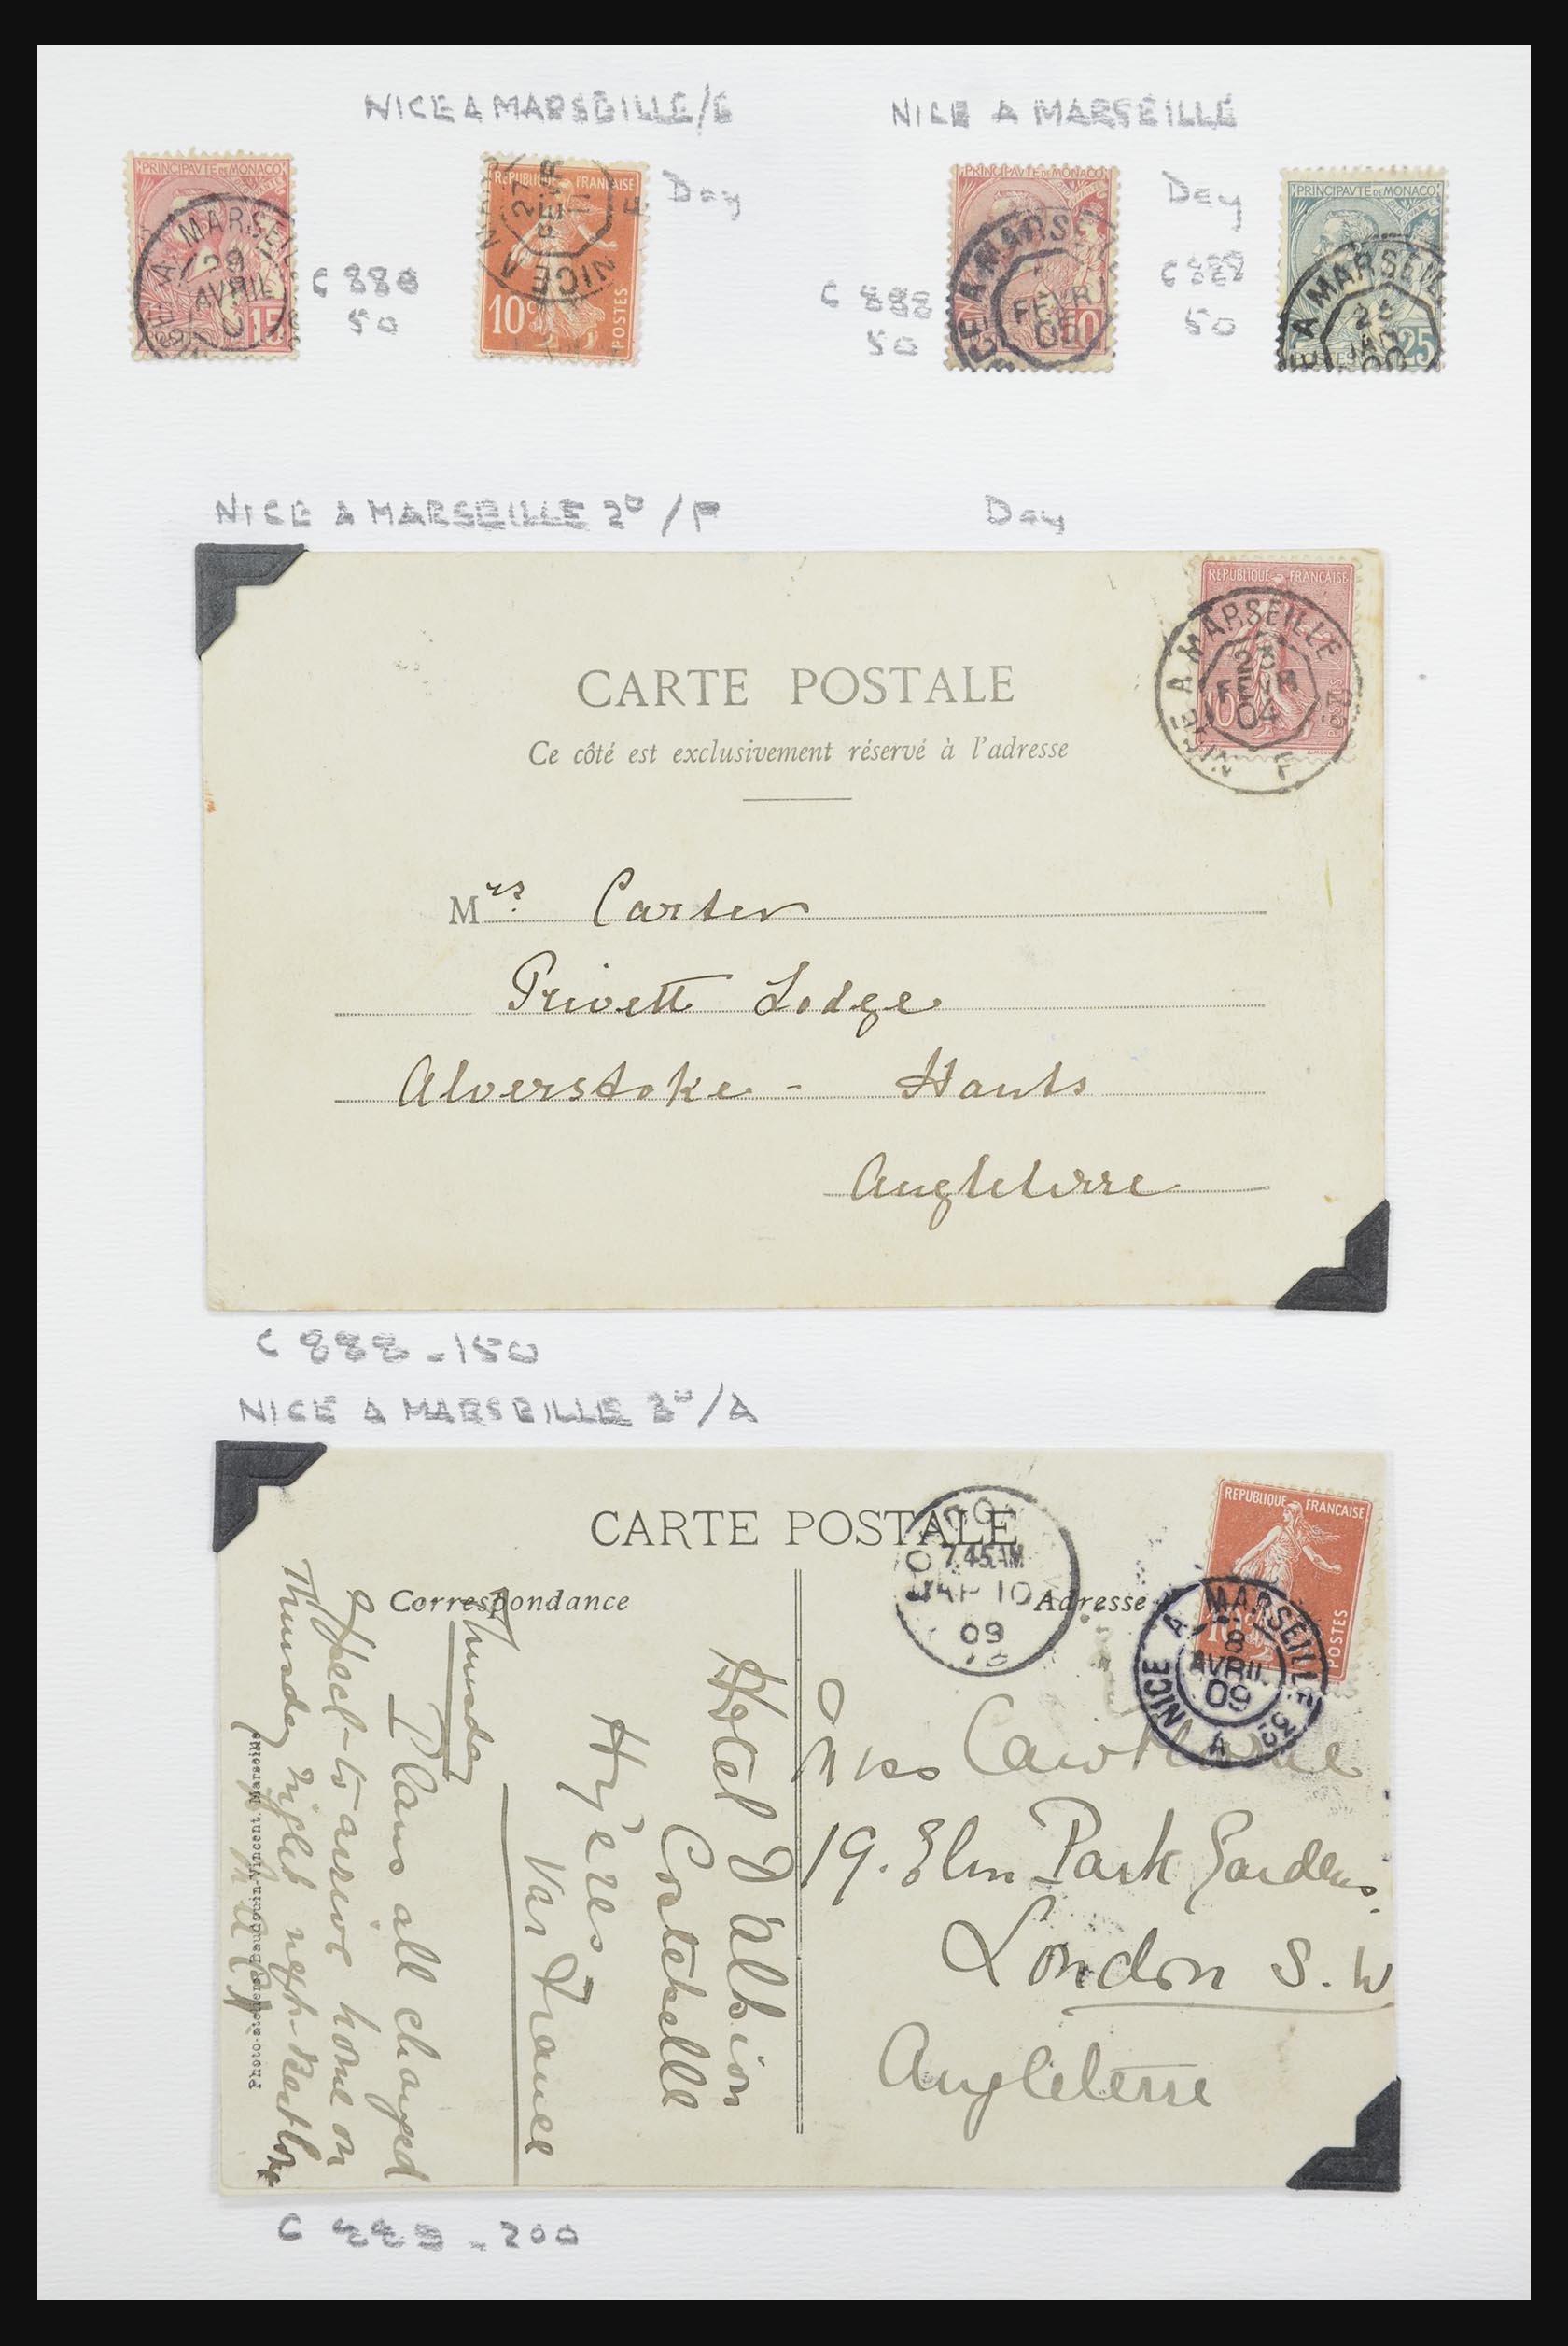 NICE A MARSEILLE/G
NICE A MARSEILLE
PRINCIPAVTE DE MONACO
A MARSEIL
29
AVRIL
15
C 880
50
REPUBLIQUE FRANÇAISE
27
FEVR
11
NICE A MAR
10c
POSTES
Day
C 888
50
PRINCIPAVTE DE MONACO
CE A MARSE
FEVR
10
Day
C 888
50
PRINCIPAVTE DE MONACO
A MARSEIL
POSTES
25
NICE A MARSEILLE 2° /F
Day
REPUBLIQUE FRANÇAISE
10
POSTES
NICE A MARSEILLE 2°
23
FEVR
04
F
CARTE POSTALE
Ce côté est exclusivement réservé à l'adresse
Mrs. Carter
Privett Lodge
Alverstoke - Hants
Angleterre
C 888 - 150
NICE A MARSEILLE 3° /A
CARTE POSTALE
Correspondance
Adresse
LONDON
7.45 AM
AP 10
09
REPUBLIQUE FRANÇAISE
10c
POSTES
NICE A MARSEILLE 3°
8
AVRIL
09
A
Miss Cawthorne
19. Elm Park Gardens.
London S.W
Angleterre
Hotel d'Albion
Costebelle
Hyères
Var France
Thursday
Plans all changed
Expect to arrive home on
Thursday night next
Photo-ateliers Baudouin-Vincent, Marseille
C 889 - 200